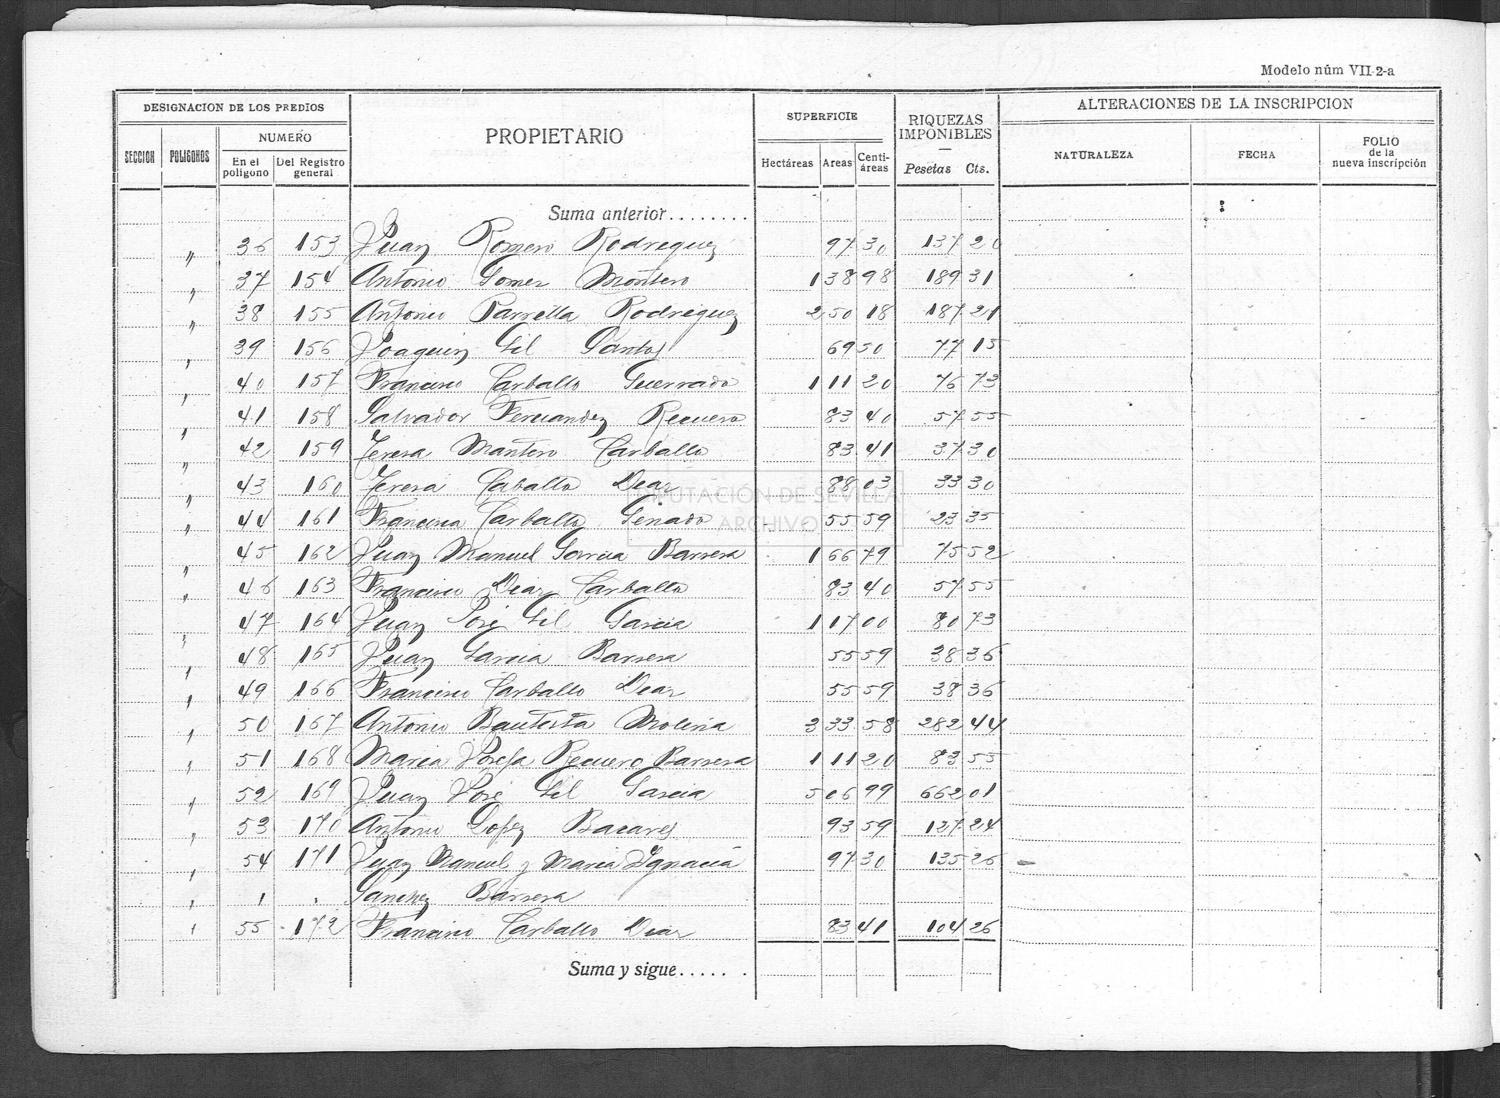 Modelo núm VII-2-a
DESIGNACION DE LOS PREDIOS
PROPIETARIO
SUPERFICIE
RIQUEZAS IMPONIBLES
ALTERACIONES DE LA INSCRIPCION
SECCION
POLIGONOS
NUMERO
En el polígono
Del Registro general
Hectáreas
Areas
Centi-áreas
Pesetas Cts.
NATURALEZA
FECHA
FOLIO de la nueva inscripción
Suma anterior........
" 36 153 Juan Romero Rodriguez 97 30 137 20
" 37 154 Antonio Gomez Montero 1 38 98 189 31
" 38 155 Antonio Parrilla Rodriguez 2 50 18 187 21
" 39 156 Joaquin Gil Santos 69 50 77 15
" 40 157 Francisco Carballo Guerrado 1 11 20 76 73
" 41 158 Salvador Fernandez Recuero 83 40 57 55
" 42 159 Teresa Mantero Carballo 83 41 37 30
" 43 160 Teresa Caballo Diaz 88 03 33 30
" 44 161 Francisca Carballo Ginado 55 59 23 35
" 45 162 Juan Manuel Garcia Barrera 1 66 79 75 52
" 46 163 Francisco Diaz Carballo 83 40 57 55
" 47 164 Juan José Gil Garcia 1 17 00 80 73
" 48 165 Juan Garcia Barrera 55 59 38 36
" 49 166 Francisco Carballo Diaz 55 59 38 36
" 50 167 Antonio Bautista Molina 3 33 58 282 44
" 51 168 Maria Josefa Recuero Barrera 1 11 20 83 55
" 52 169 Juan José Gil Garcia 5 06 99 662 01
" 53 170 Antonio Lopez Bacares 93 59 127 24
" 54 171 Juan Manuel y Maria Ignacia 97 30 135 26
Sanchez Barrera
" 55 172 Francisco Carballo Diaz 83 41 104 26
Suma y sigue......
DIPUTACIÓN DE SEVILLA
ARCHIVO